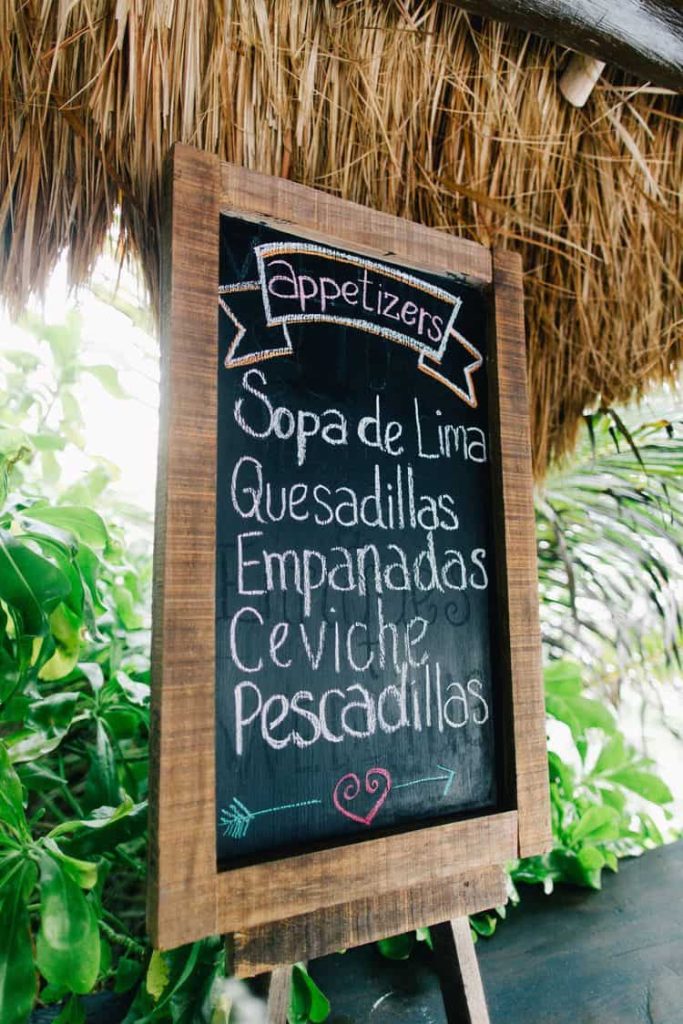 appetizers
Sopa de Lima
Quesadillas
Empanadas
Ceviche
Pescadillas